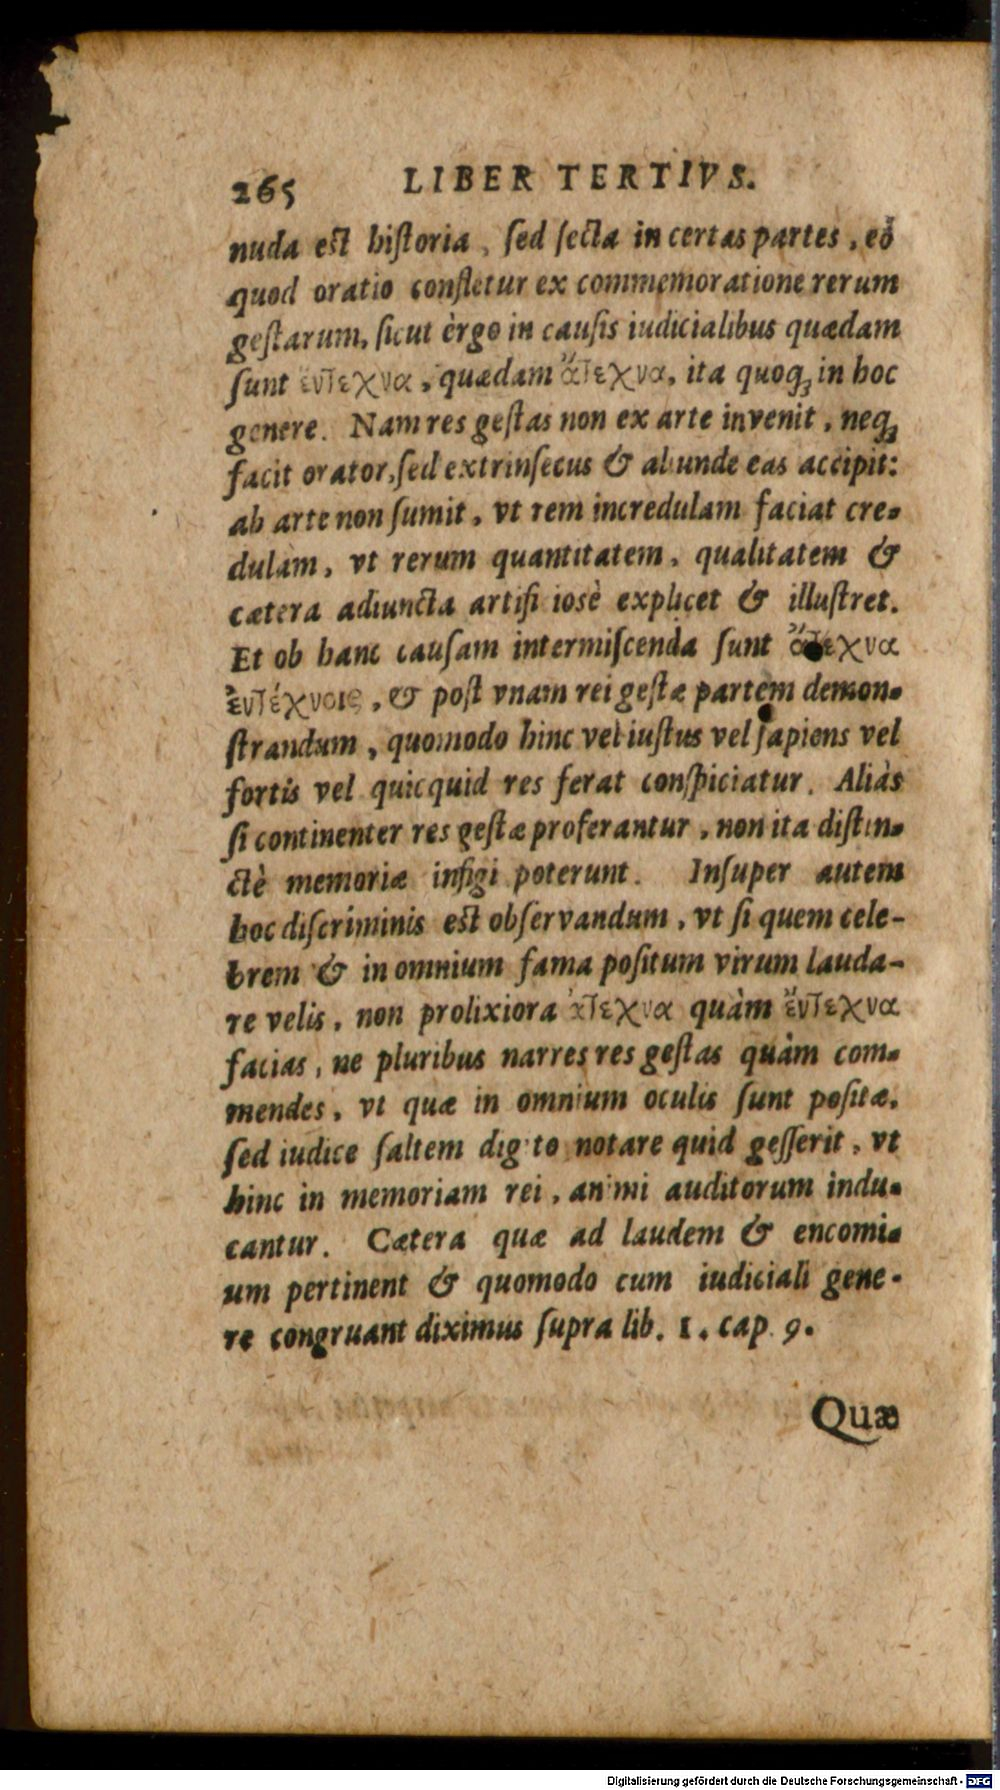 265 LIBER TERTIVS.
nuda est historia, sed secta in certas partes, eò
quod oratio constetur ex commemoratione rerum
gestarum, sicut èrgo in causis iudicialibus quædam
sunt ἔντεχνα, quædam ἄτεχνα, ita quoq; in hoc
genere. Nam res gestas non ex arte invenit, neq;
facit orator, sed extrinsecus & aliunde eas accipit:
ab arte non sumit, vt rem incredulam faciat cre-
dulam, vt rerum quantitatem, qualitatem &
cætera adiuncta artificiosè explicet & illustret.
Et ob hanc causam intermiscenda sunt ἄτεχνα
ἐντέχνοις, & post vnam rei gestæ partem demon-
strandum, quomodo hinc vel iustus vel sapiens vel
fortis vel quicquid res ferat conspiciatur. Aliàs
si continenter res gestæ proferantur, non ita distin-
ctè memoriæ infigi poterunt. Insuper autem
hoc discriminis est observandum, vt si quem cele-
brem & in omnium fama positum virum lauda-
re velis, non prolixiora ἄτεχνα quàm ἔντεχνα
facias, ne pluribus narres res gestas quàm com-
mendes, vt quæ in omnium oculis sunt positæ.
sed iudice saltem digito notare quid gesserit, vt
hinc in memoriam rei, animi auditorum indu-
cantur. Cætera quæ ad laudem & encomi-
um pertinent & quomodo cum iudiciali gene-
re congruant diximus supra lib. 1. cap. 9.
Quæ
Digitalisierung gefördert durch die Deutsche Forschungsgemeinschaft - DFG